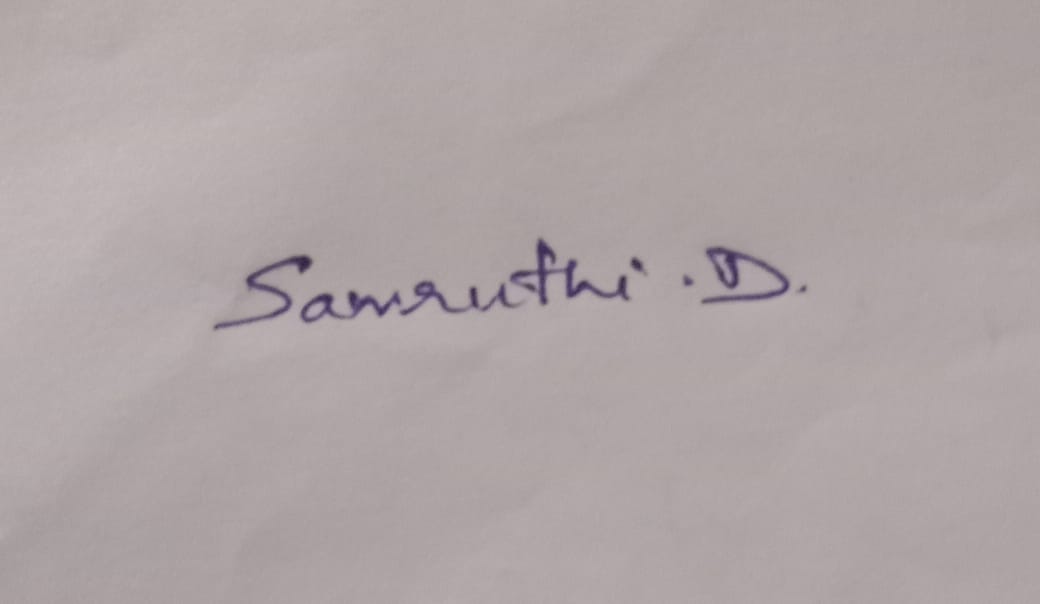 Samruthi .D.